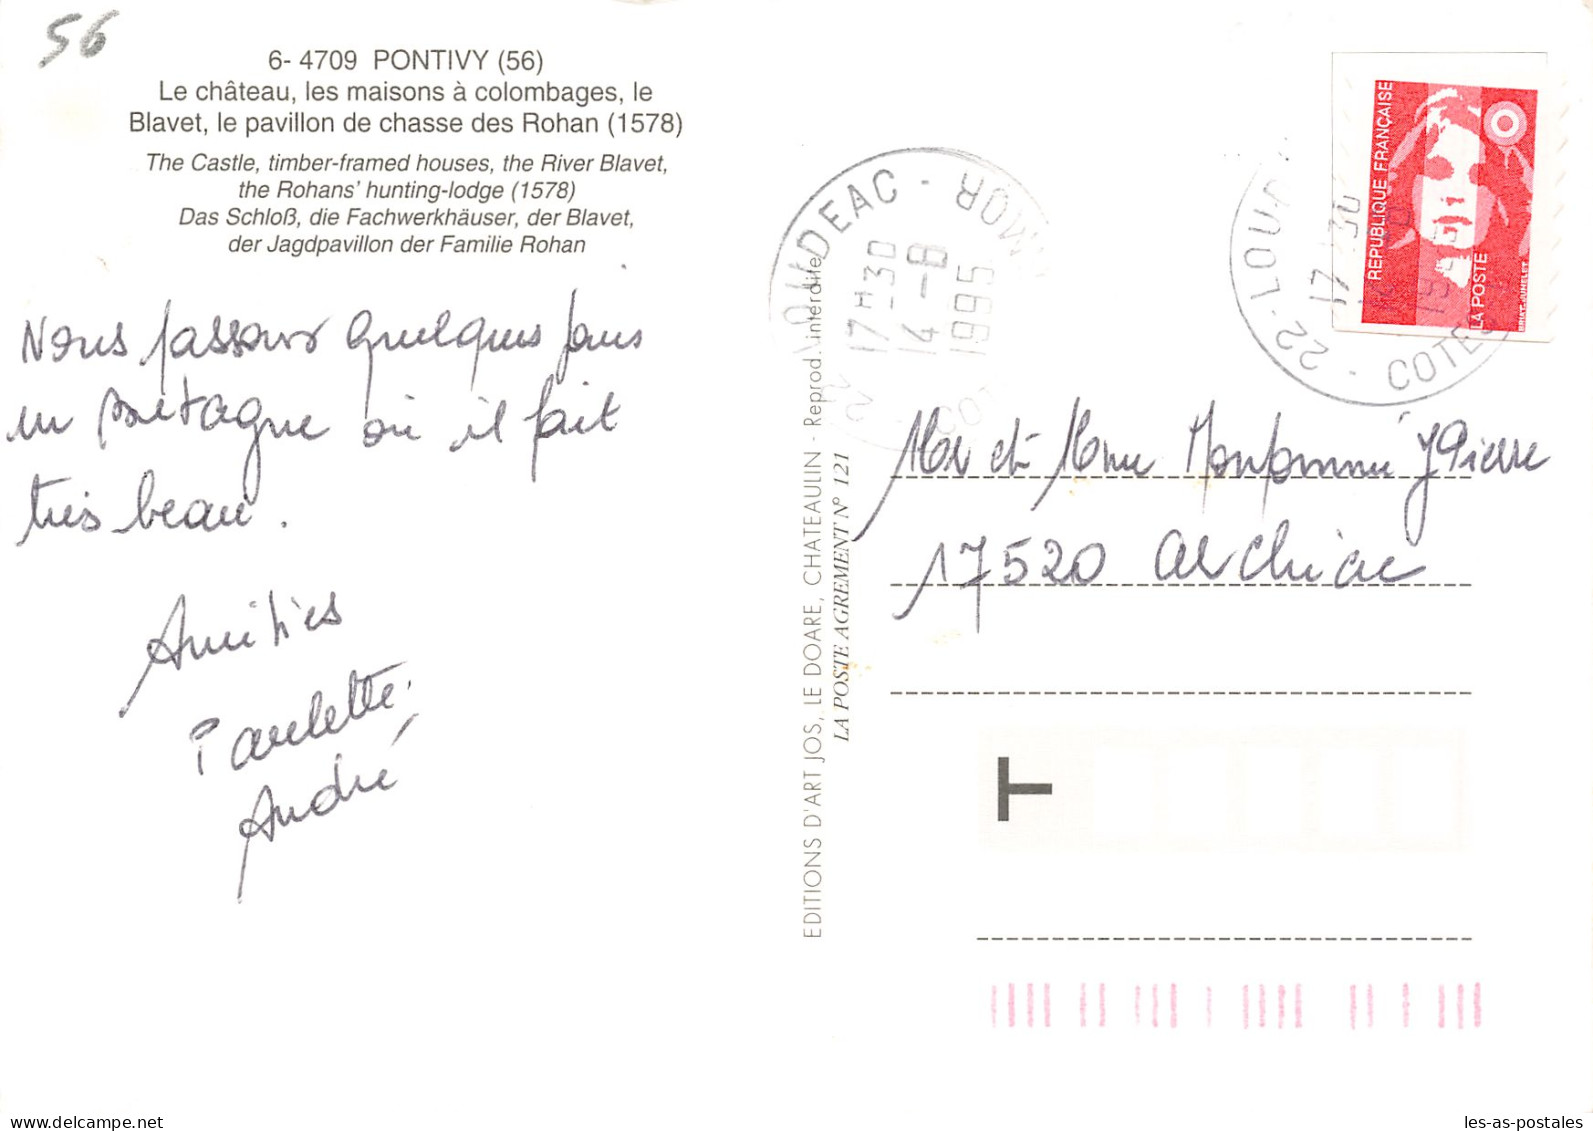 56
6- 4709 PONTIVY (56)
Le château, les maisons à colombages, le
Blavet, le pavillon de chasse des Rohan (1578)
The Castle, timber-framed houses, the River Blavet,
the Rohans' hunting-lodge (1578)
Das Schloß, die Fachwerkhäuser, der Blavet,
der Jagdpavillon der Familie Rohan
Nous passons quelques jours
en Bretagne où il fait
très beau.
Amitiés
Paulette
André
EDITIONS D'ART JOS, LE DOARE, CHATEAULIN - Reprod. interdite
LA POSTE AGREMENT N° 121
22 LOUDEAC - ARMOR
17H30
14-8
1995
COT
22-LOUD
17 30
1995
COTES
REPUBLIQUE FRANÇAISE
LA POSTE
BRIAT-JUMELET
Mr et Mme JPierre
17520 Archiac
T
www.delcampe.net
les-as-postales